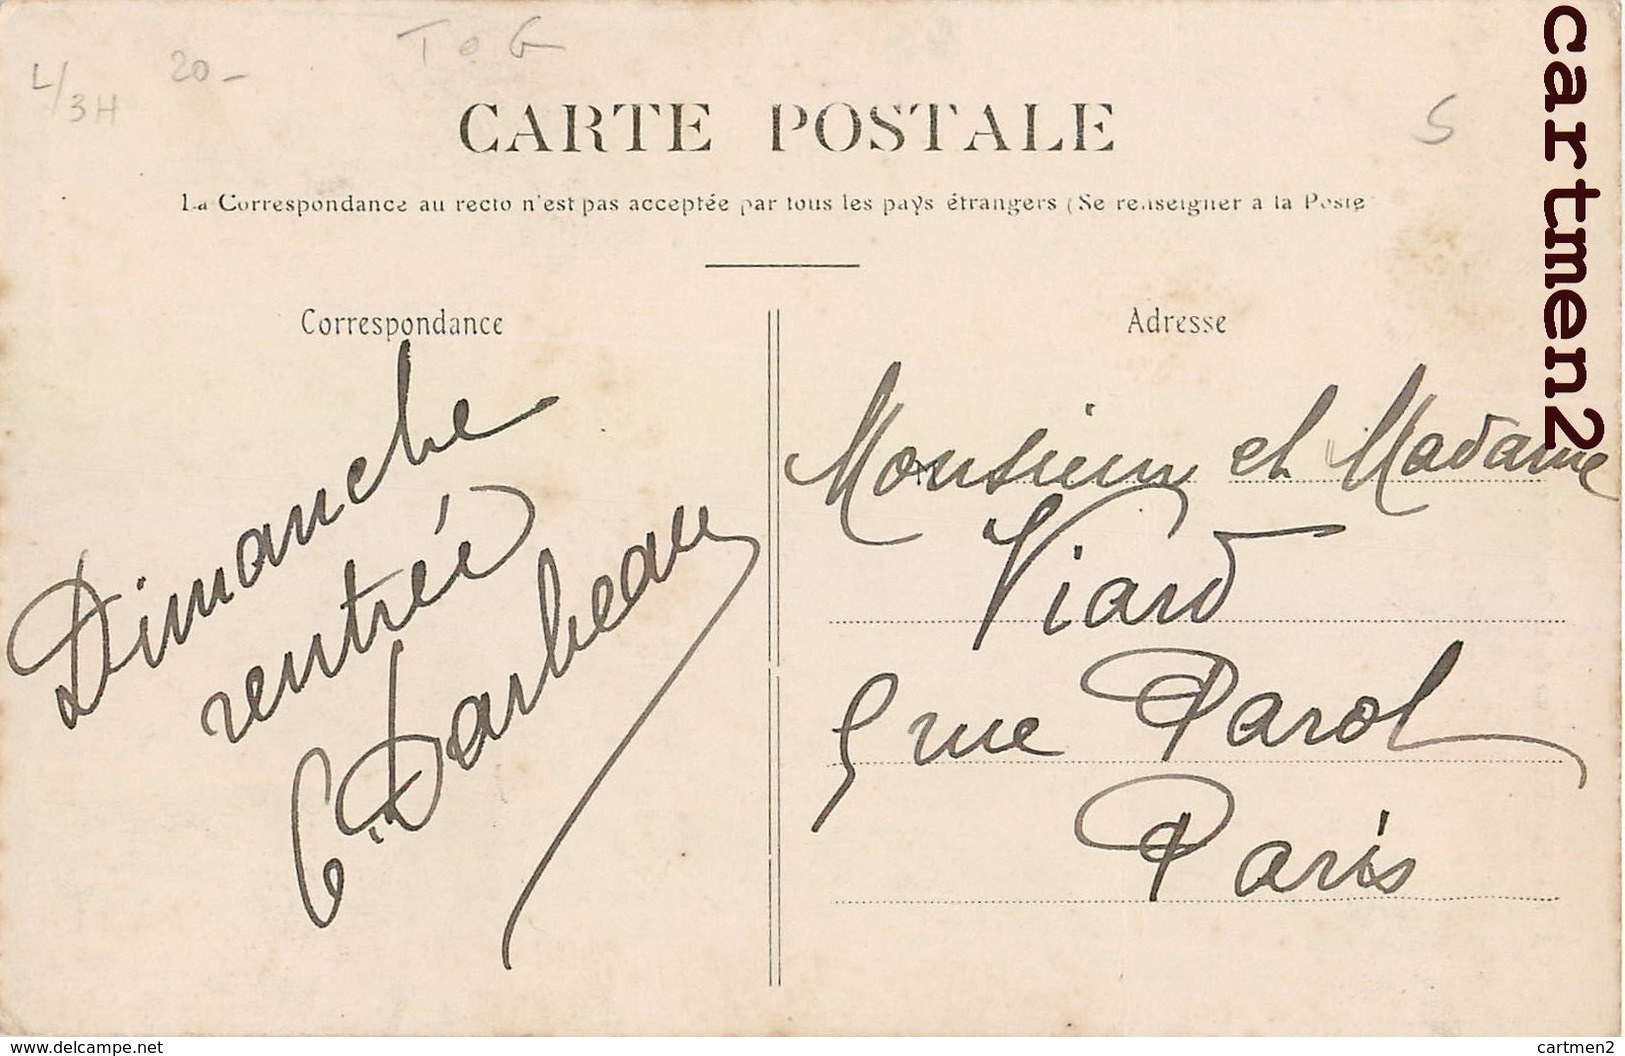 T o G
20-
L/3H
S
CARTE POSTALE
La Correspondance au recto n'est pas acceptée par tous les pays étrangers (Se renseigner a la Poste
Correspondance
Dimanche
rentrée
C. Darbeau
Adresse
Monsieur et Madame
Viard
5 rue Parol
Paris
cartmen2
www.delcampe.net
cartmen2